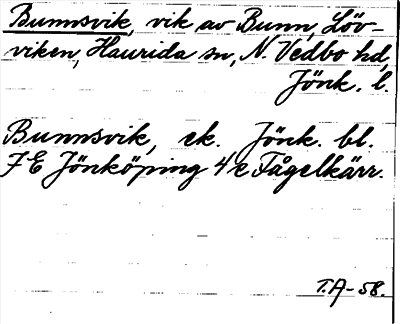 Bunnsvik, vik av Bunn, Löv-
viken, Haurida sn, N. Vedbo hd,
Jönk. l.
Bunnsvik, ek. Jönk. bl.
7E Jönköping 4e Fågelkärr.
T.A-58.